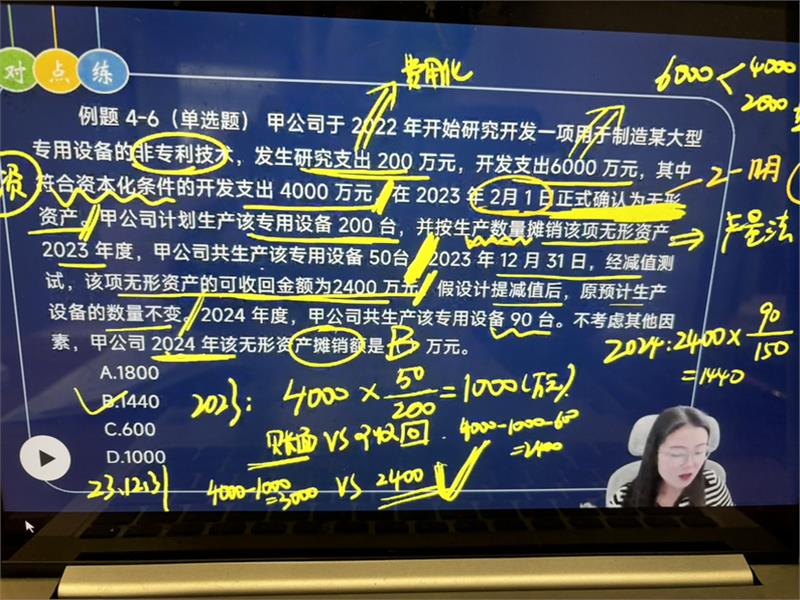 对点练
费用化
6000 < 4000
2000
例题 4-6（单选题） 甲公司于 2022 年开始研究开发一项用于制造某大型
专用设备的非专利技术，发生研究支出 200 万元，开发支出6000 万元，其中
符合资本化条件的开发支出 4000 万元，在 2023 年 2月 1 日正式确认为无形
资产。甲公司计划生产该专用设备 200 台，并按生产数量摊销该项无形资产
2023 年度，甲公司共生产该专用设备 50台。2023 年 12 月 31 日，经减值测
试，该项无形资产的可收回金额为2400 万元。假设计提减值后，原预计生产
设备的数量不变。2024 年度，甲公司共生产该专用设备 90 台。不考虑其他因
素，甲公司 2024 年该无形资产摊销额是 B 万元。
损
2-1明
产量法
A.1800
B.1440
C.600
D.1000
2024:2400×90/150
=1440
2023: 4000×50/200=1000(万元)
账面 VS 可收回
4000-1000-600
=2400
23.12.31 4000-1000
=3000 VS 2400